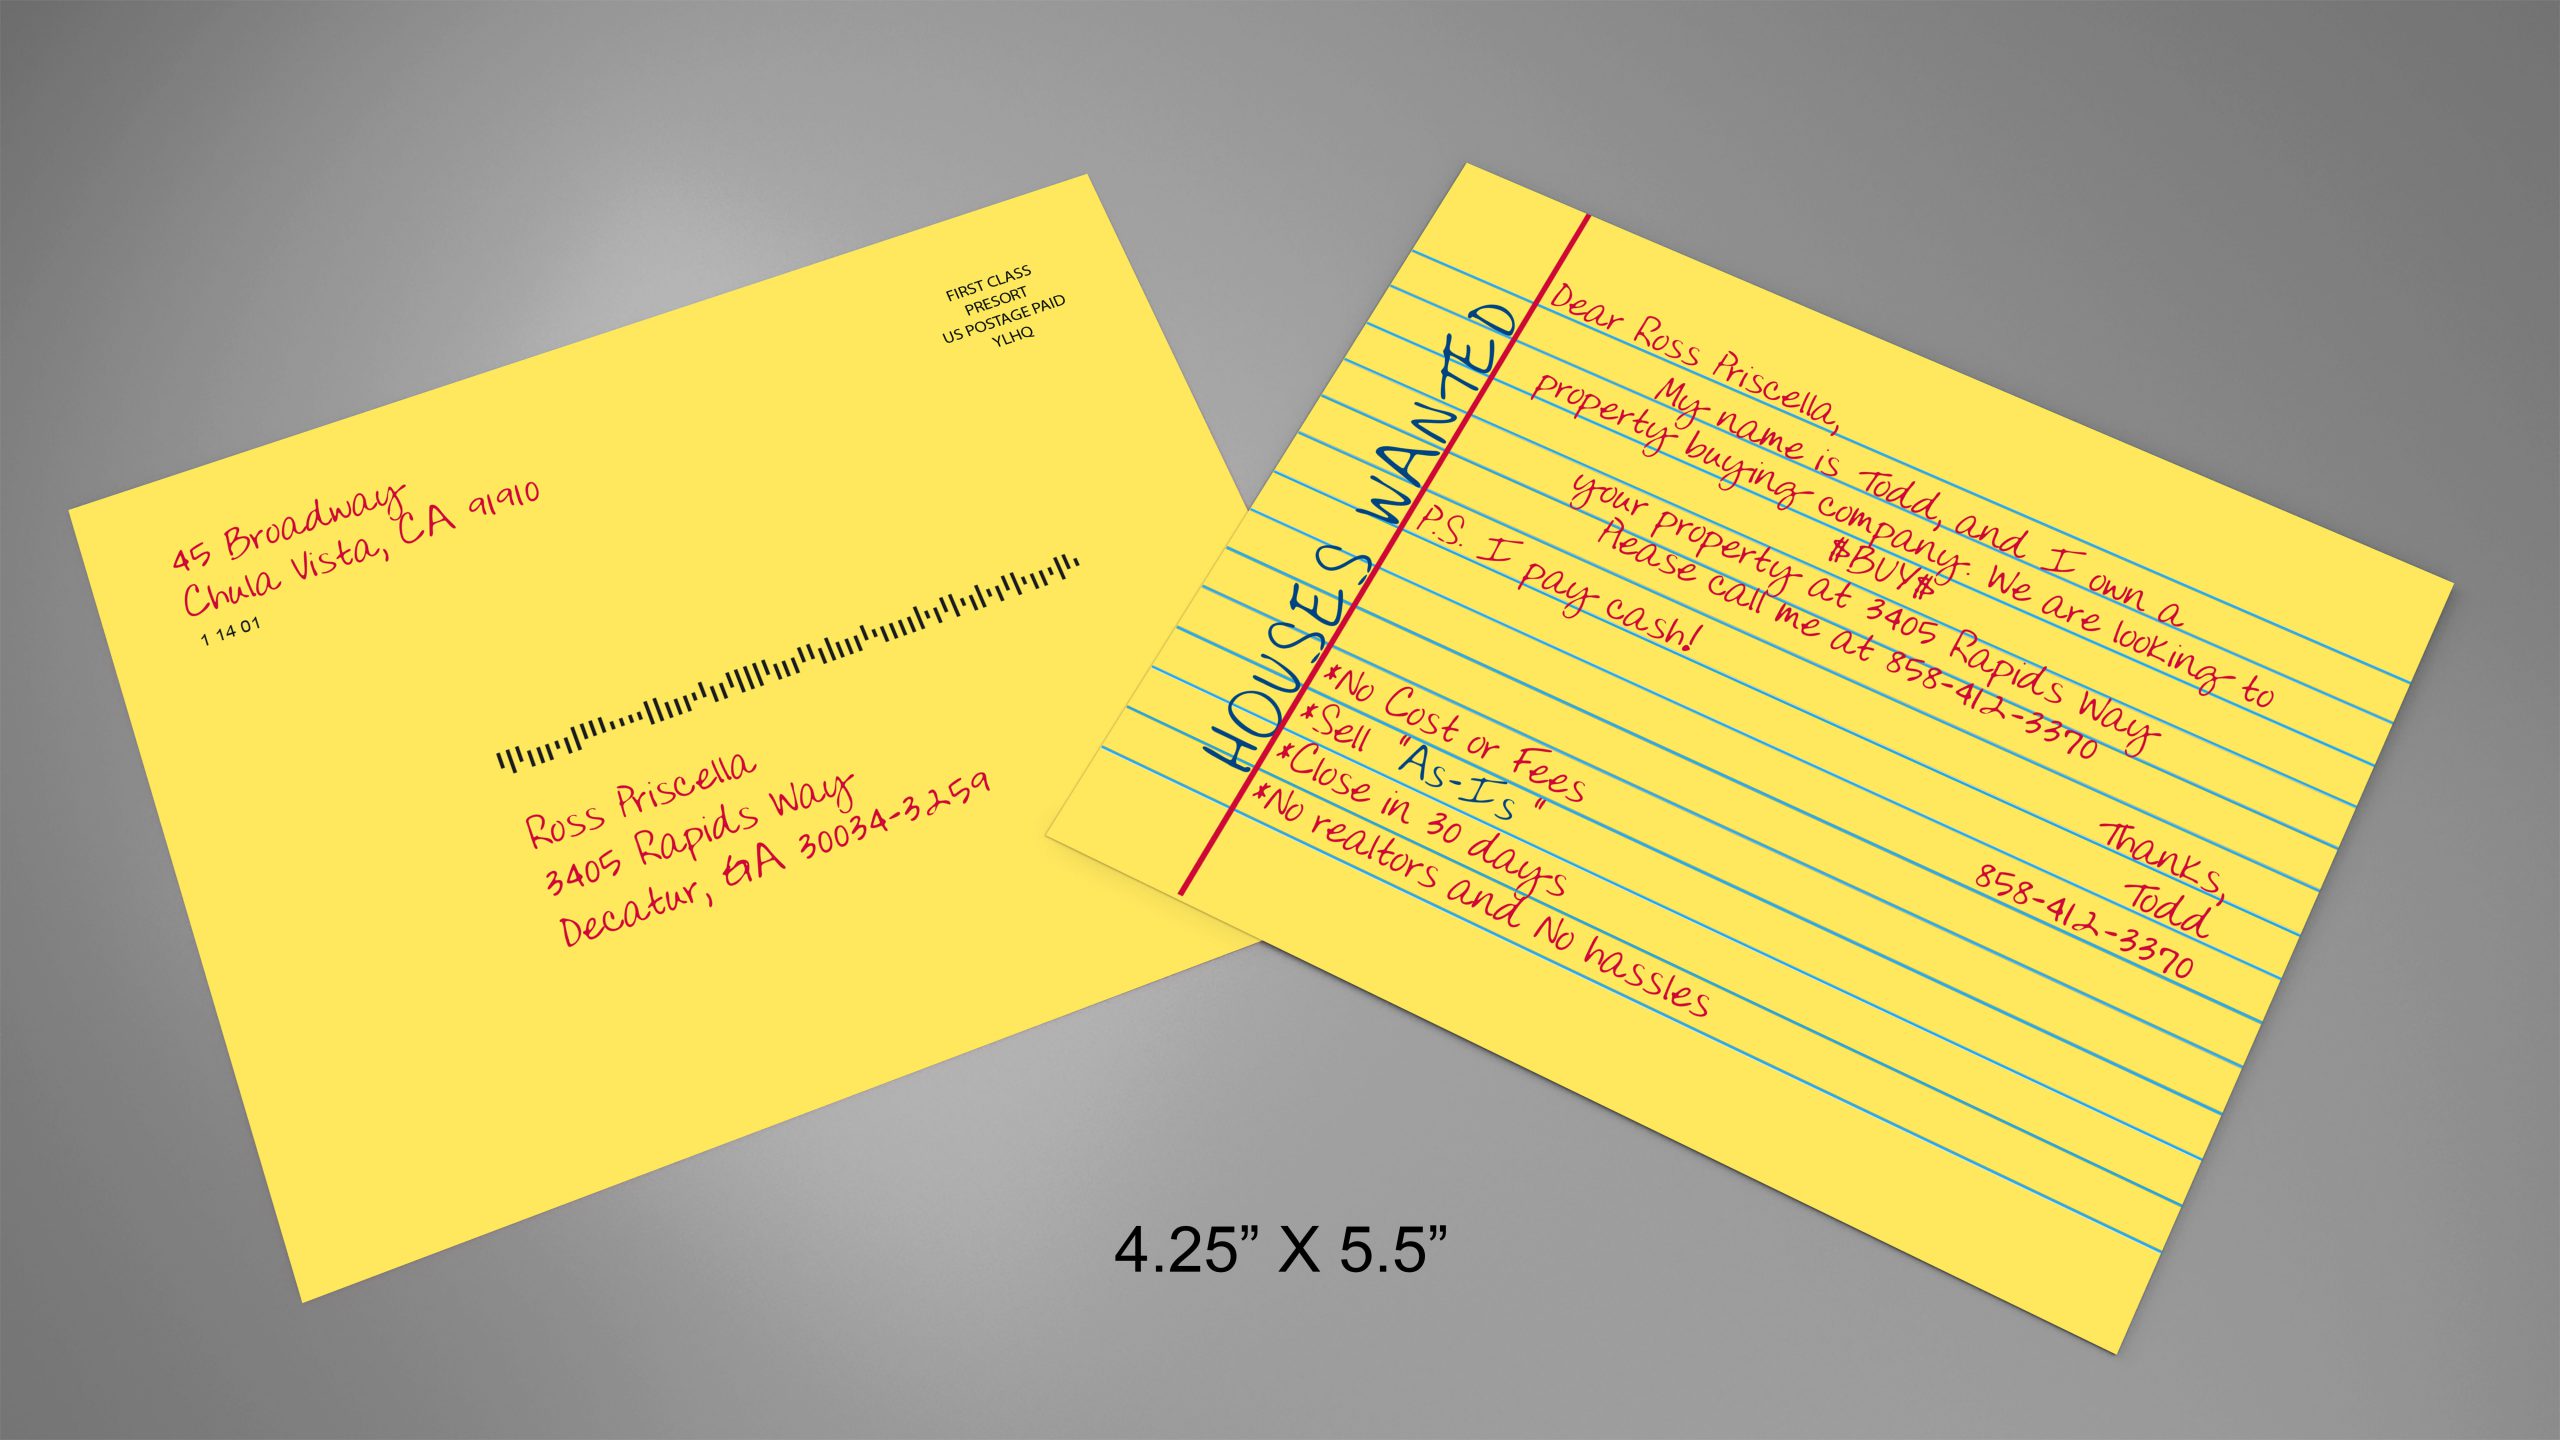 FIRST CLASS
PRESORT
US POSTAGE PAID
YLHQ
45 Broadway
Chula Vista, CA 91910
1 14 01
Ross Priscella
3405 Rapids Way
Decatur, GA 30034-3259
HOUSES WANTED
Dear Ross Priscella,
My name is Todd, and I own a
property buying company. We are looking to
$BUY$
your property at 3405 Rapids Way
Please call me at 858-412-3370
P.S. I pay cash!
Thanks,
Todd
858-412-3370
*No Cost or Fees
*Sell "As-Is"
*Close in 30 days
*No realtors and No hassles
4.25” X 5.5”